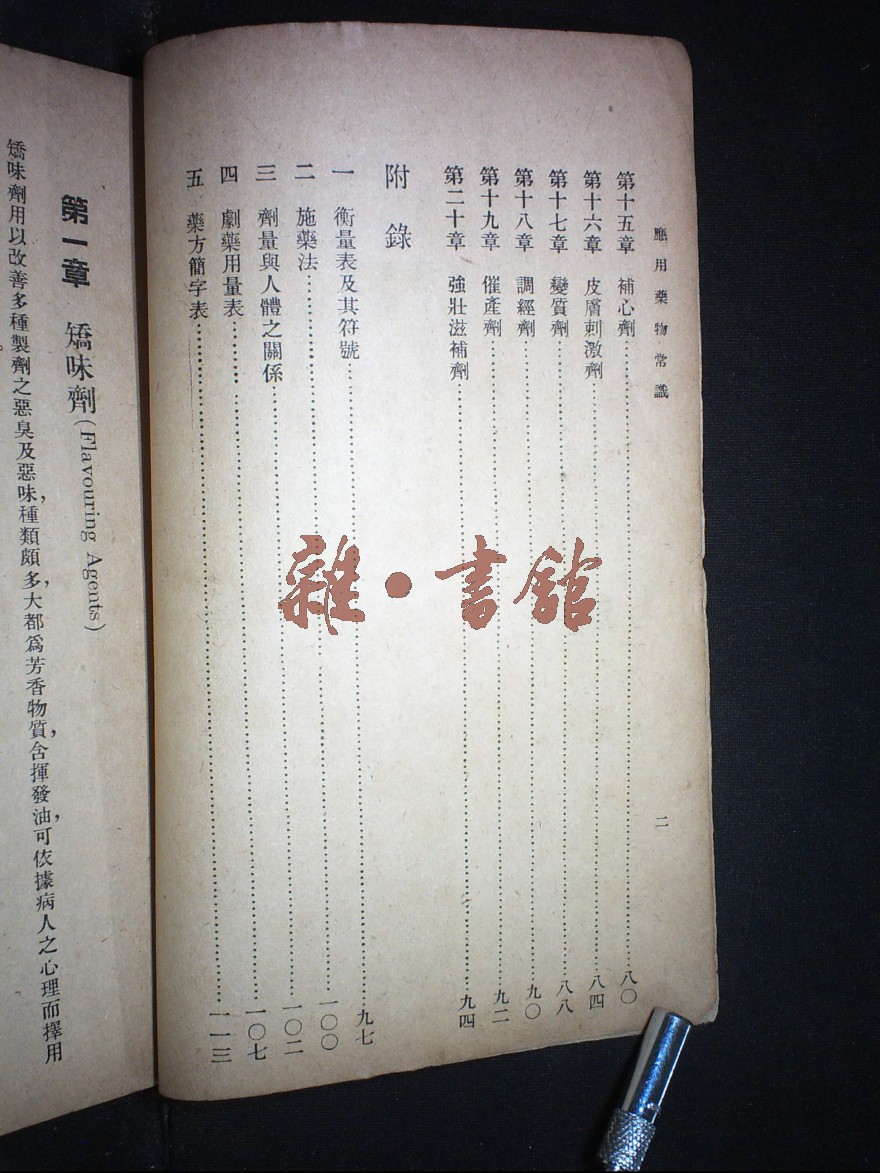 應用藥物常識
二
第十五章 補心劑……八〇
第十六章 皮膚刺激劑……八四
第十七章 變質劑……八八
第十八章 調經劑……九〇
第十九章 催產劑……九二
第二十章 強壯滋補劑……九四
附錄
一 衡量表及其符號……九七
二 施藥法……一〇〇
三 劑量與人體之關係……一〇二
四 劇藥用量表……一〇七
五 藥方簡字表……一一三
雜•書館
第一章 矯味劑(Flavouring Agents)
矯味劑用以改善多種製劑之惡臭及惡味,種類頗多,大都爲芳香物質,含揮發油,可依據病人之心理而擇用